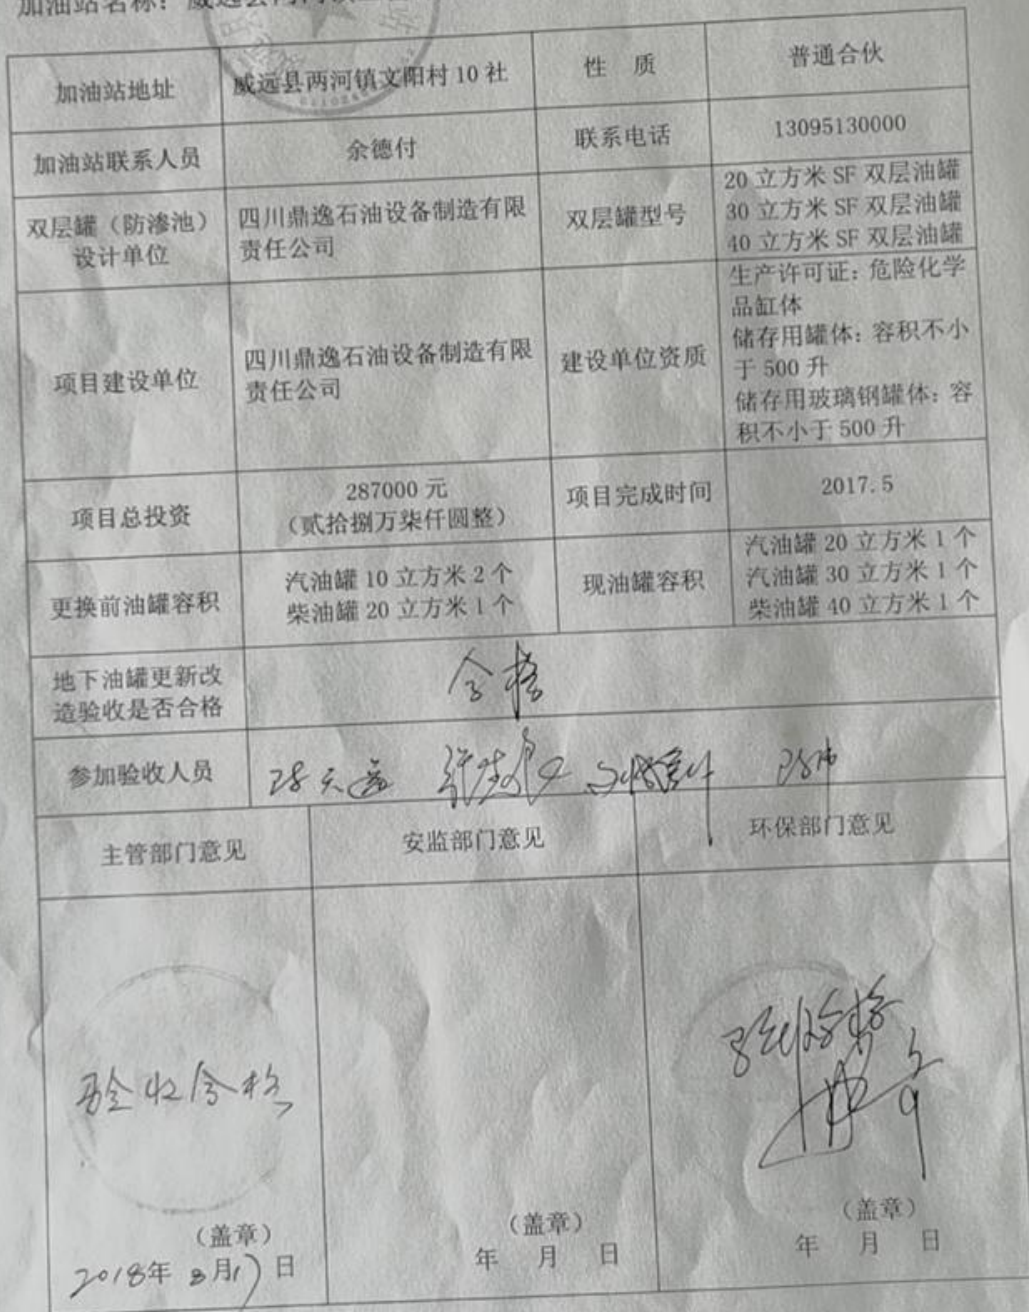 加油站名称：威远县两河镇
加油站地址
威远县两河镇文阳村 10 社
性 质
普通合伙
加油站联系人员
余德付
联系电话
13095130000
双层罐（防渗池）
设计单位
四川鼎逸石油设备制造有限
责任公司
双层罐型号
20 立方米 SF 双层油罐
30 立方米 SF 双层油罐
40 立方米 SF 双层油罐
项目建设单位
四川鼎逸石油设备制造有限
责任公司
建设单位资质
生产许可证：危险化学
品缸体
储存用罐体：容积不小
于 500 升
储存用玻璃钢罐体：容
积不小于 500 升
项目总投资
287000 元
（贰拾捌万柒仟圆整）
项目完成时间
2017.5
更换前油罐容积
汽油罐 10 立方米 2 个
柴油罐 20 立方米 1 个
现油罐容积
汽油罐 20 立方米 1 个
汽油罐 30 立方米 1 个
柴油罐 40 立方米 1 个
地下油罐更新改
造验收是否合格
合格
参加验收人员
主管部门意见
安监部门意见
环保部门意见
验收合格
验收合格
（盖章）
2018年 8月17日
（盖章）
年 月 日
（盖章）
年 月 日